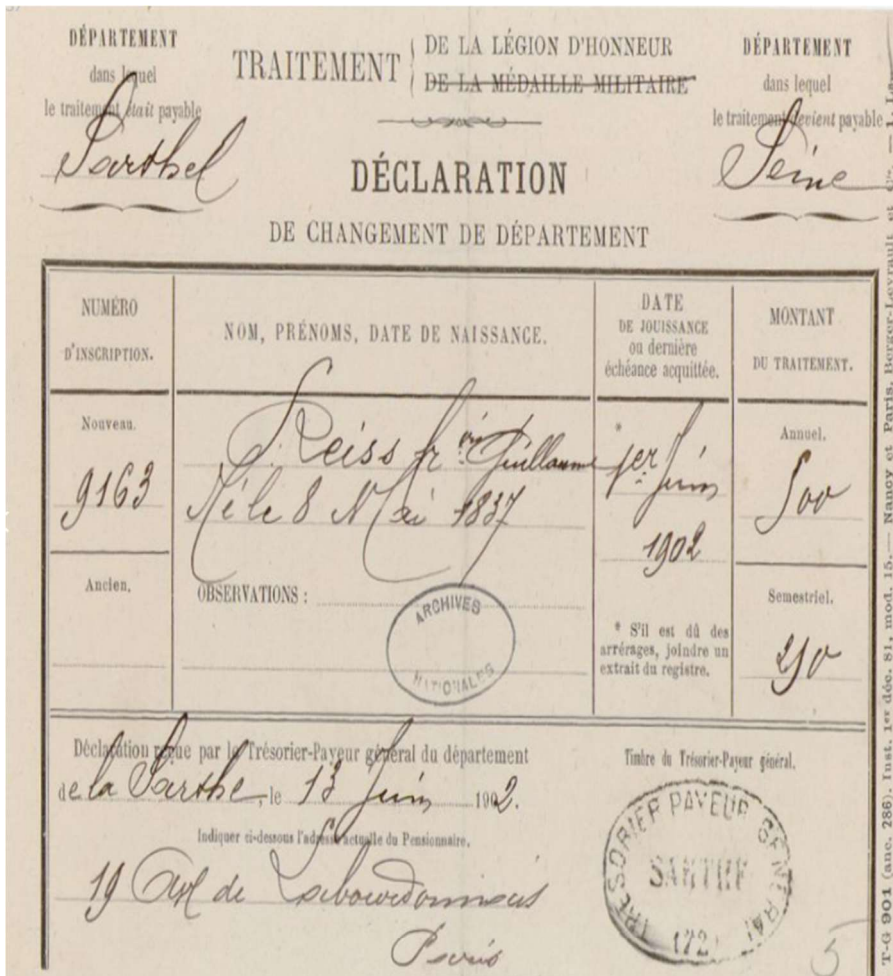 DÉPARTEMENT
dans lequel
le traitement était payable
Sarthe
TRAITEMENT
DE LA LÉGION D'HONNEUR
DE LA MÉDAILLE MILITAIRE
DÉPARTEMENT
dans lequel
le traitement devient payable
Seine
DÉCLARATION
DE CHANGEMENT DE DÉPARTEMENT
NUMÉRO
D'INSCRIPTION.
NOM, PRÉNOMS, DATE DE NAISSANCE.
DATE
DE JOUISSANCE
ou dernière
échéance acquittée.
MONTANT
DU TRAITEMENT.
Nouveau.
9163
Reiss Guillaume
Né le 8 Mai 1837
*
1er Juin
1902
Annuel.
500
Ancien.
OBSERVATIONS :
ARCHIVES
NATIONALES
* S'il est dû des
arrérages, joindre un
extrait du registre.
Semestriel.
250
Déclaration reçue par le Trésorier-Payeur général du département
de la Sarthe, le 13 Juin 1902.
Indiquer ci-dessous l'adresse actuelle du Pensionnaire.
19 de Labourdonnais
Paris
Timbre du Trésorier-Payeur général.
TRESORIER PAYEUR GENERAL
SARTHE
(72)
5
T-G 901 (anc. 286). Inst. 1er déc. 81, mod. 15. — Nancy et Paris, Berger-Levrault